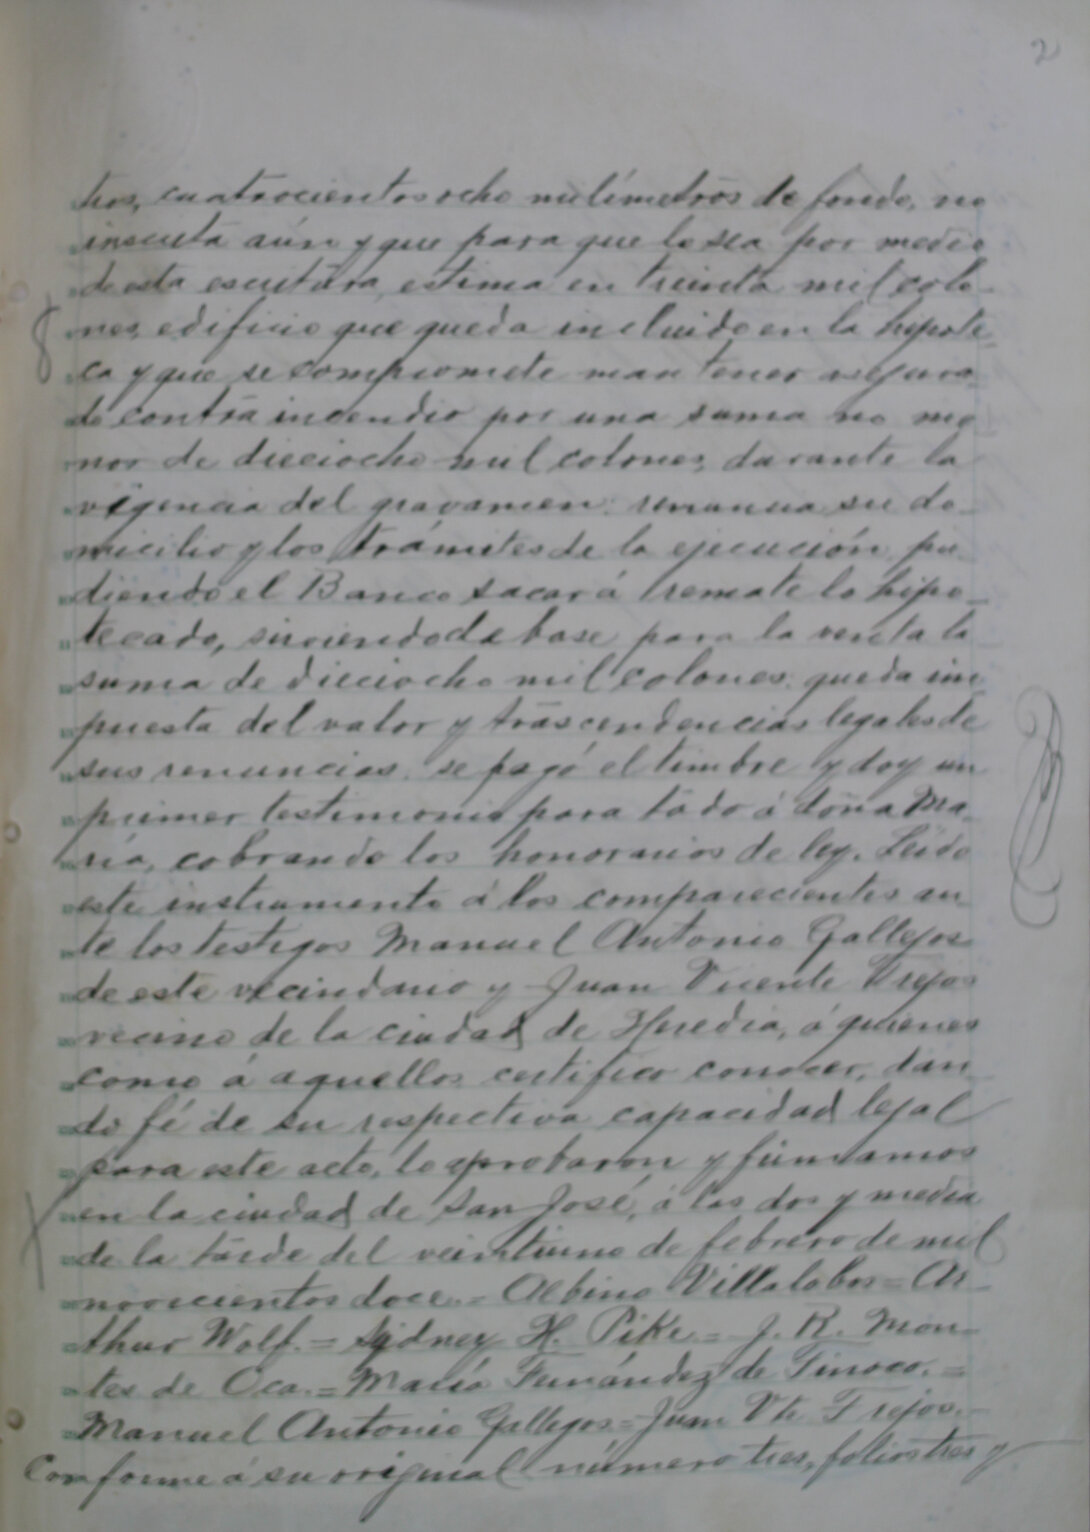 2
tros, cuatrocientos ocho milímetros de fondo, no
inscrita aún y que para que lo sea por medio
de esta escritura, estima en treinta mil colo-
nes, edificio que queda incluido en la hipote-
ca y que se compromete mantener asegura-
do contra incendio por una suma no me
nor de dieciocho mil colones, durante la
vigencia del gravamen: renuncia su do-
micilio y los trámites de la ejecución, pu-
diendo el Banco sacar á remate lo hipo-
tecado, sirviendo de base para la venta la
suma de dieciocho mil colones: queda im-
puesta del valor y trascendencias legales de
sus renuncias: se pagó el timbre y doy un
primer testimonio para todo á doña Ma-
ría, cobrando los honorarios de ley. Leído
este instrumento á los comparecientes an-
te los testigos Manuel Antonio Gallegos
de este vecindario y Juan Vicente Trejos
vecino de la ciudad de Heredia, á quienes
como á aquellos certifico conocer, dan-
do fé de su respectiva capacidad legal
para este acto, lo aprobaron y firmamos
en la ciudad de San José, á las dos y media
de la tarde del veintiuno de febrero de mil
novecientos doce.= Albino Villalobos= Ar-
thur Wolf.= Sydney H. Pike.= J. R. Mon-
tes de Oca.= María Fernández de Tinoco.=
Manuel Antonio Gallegos=Juan Vte Trejos.-
Conforme á su original número tres, folios tres y